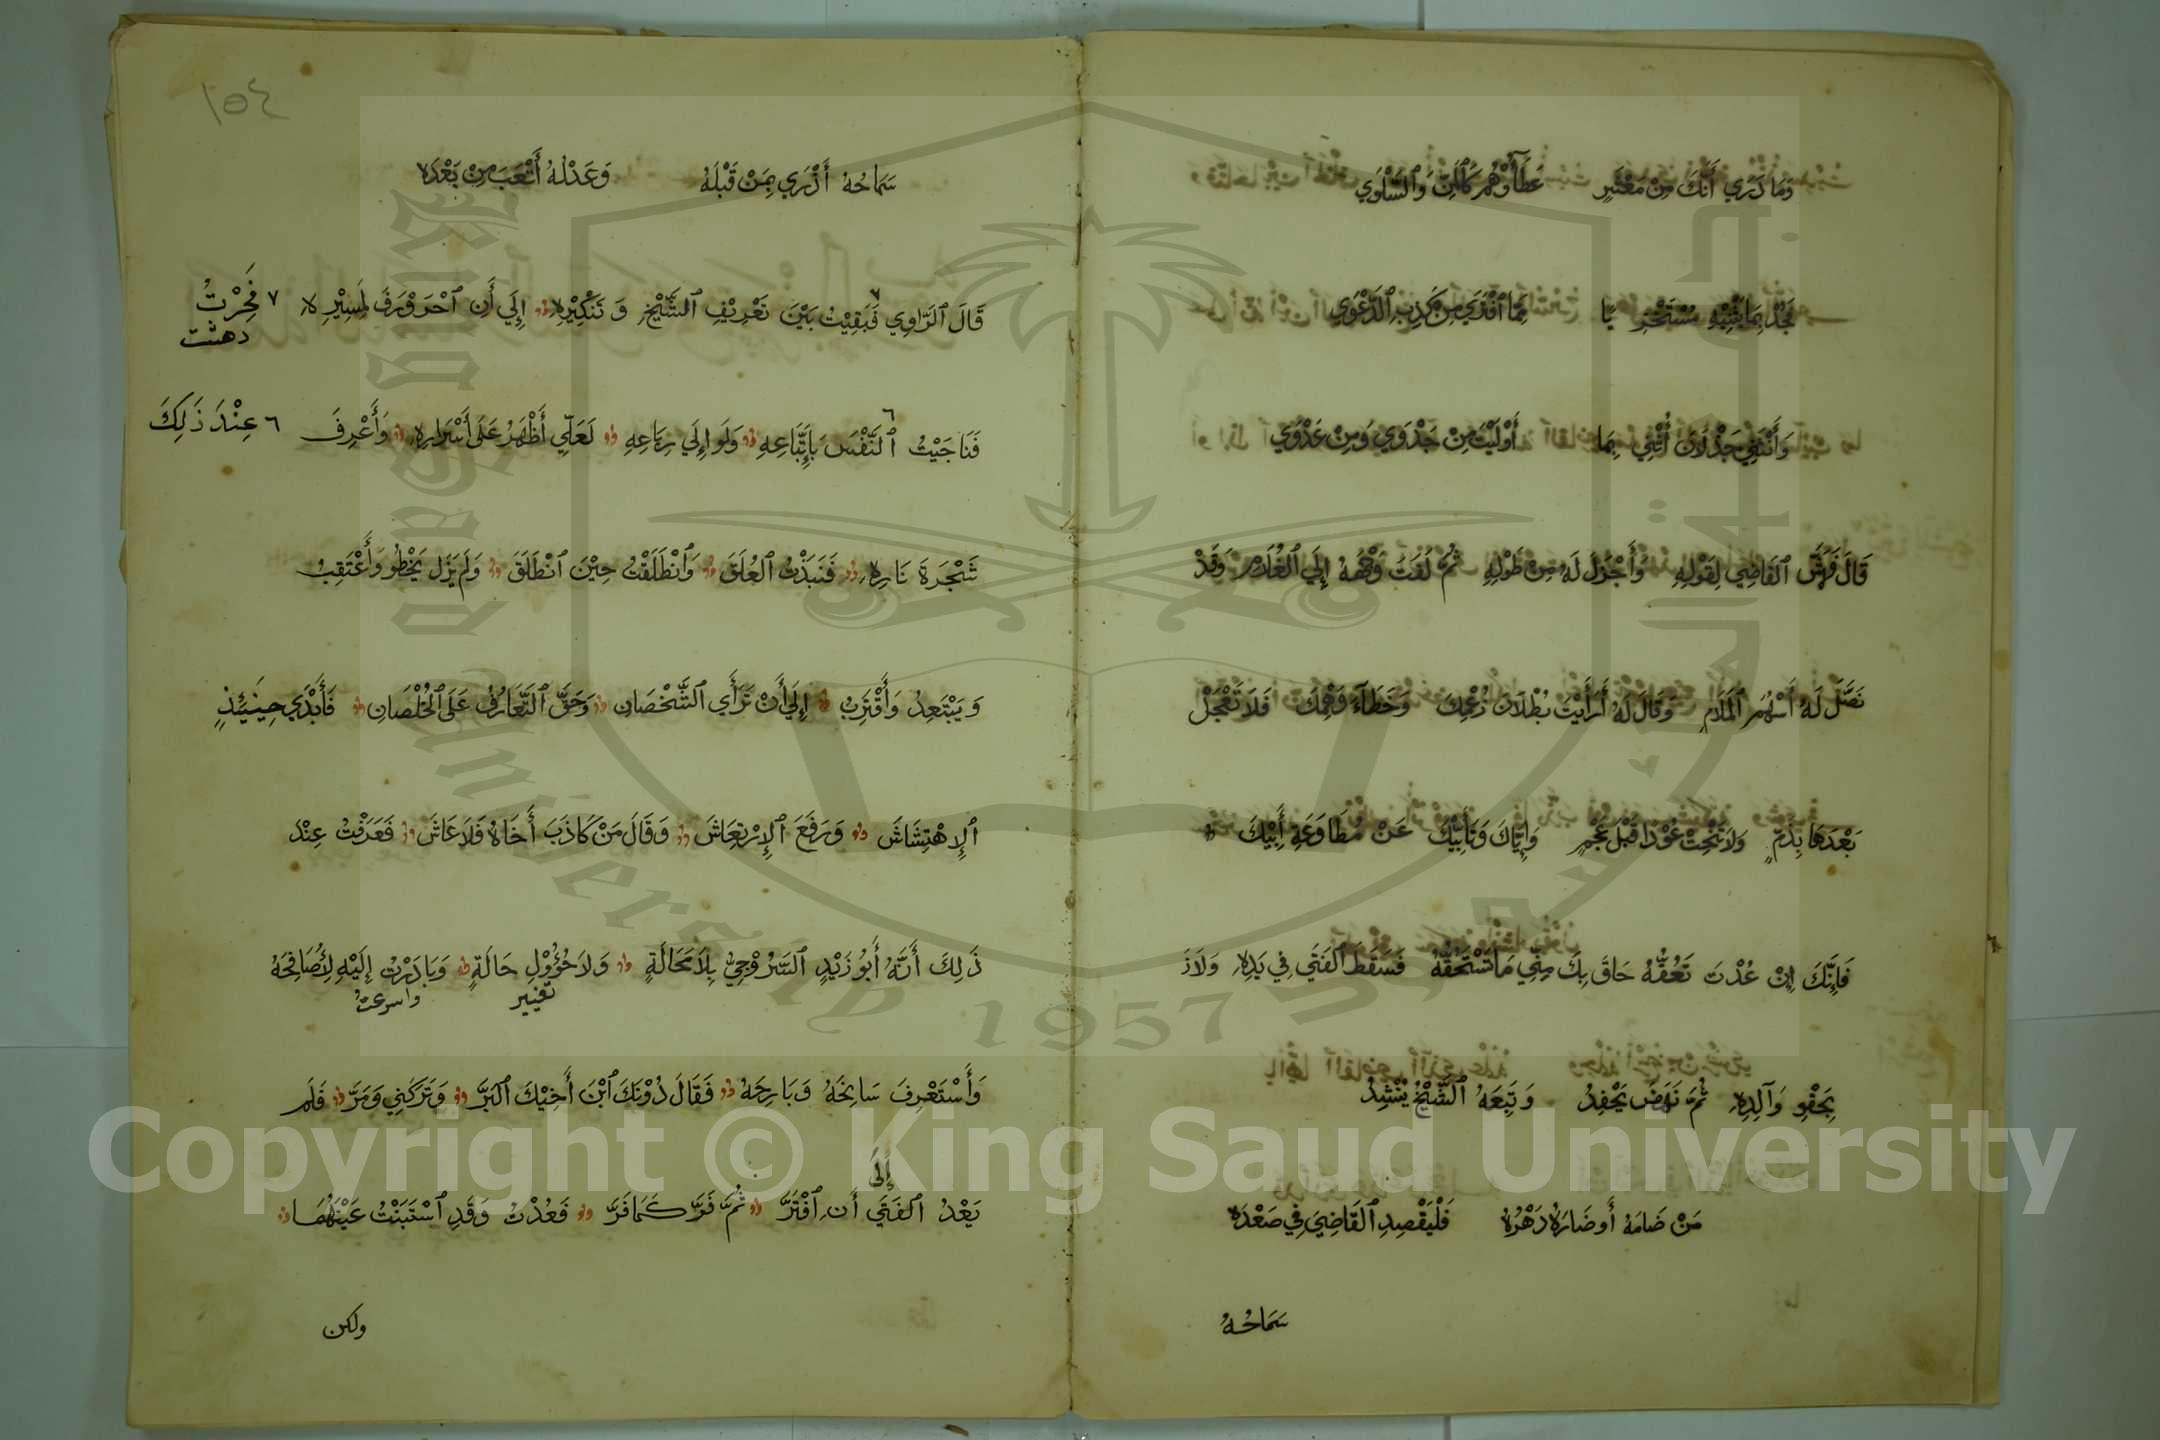 وَمَا دَرَي أَنَّكَ مِنْ مَعْشَرٍ عَطَآؤُهُمْ كَٱلْمَنِّ وَٱلسَّلْوَي
فَجُدْ بِمَا يَثْنِيْهِ مُسْتَخْزِيًا مِمَّا ٱفْتَرَي مِنْ كَذِبِ ٱلدَّعْوَي
وَأَنْثَنِي جَذْلَانَ أُثْنِي بِمَا أَوْلَيْتَ مِنْ جَدْوَي وَمِنْ عَدْوَي
قَالَ فَهَشَّ ٱلقَاضِي لِقَوْلِهِ وَأَجْزَلَ لَهُ مِنْ طَوْلِهِ ثُمَّ لَفَتَ وَجْهَهُ إِلَي ٱلْغُلَامِ وَقَدْ
نَصَّلَ لَهُ أَسْهُمَ ٱلْمَلَامِ وَقَالَ لَهُ أَرَأَيْتَ بُطْلَانَ زُعْمِكَ وَخَطَآءَ وَهْمِكَ فَلَا تَعْجَلْ
بَعْدَهَا بِذَمٍّ وَلَا تَنْحِتْ عُوْدًا قَبْلَ عَجْمٍ وَإِيَّاكَ وَتَأَبِّيْكَ عَنْ مُطَاوَعَةِ أَبِيْكَ
فَإِنَّكَ إِنْ عُدْتَ تَعُقُّهُ حَاقَ بِكَ مِنِّي مَا تَسْتَحِقُّهُ فَسَقَطَ ٱلْفَتَي فِي يَدِهِ وَلَاذَ
بِحَقْوِ وَآلِدِهِ ثُمَّ نَهَضَ يَحْفِدُ وَتَبِعَهُ ٱلشَّيْخُ يُنْشِدُ
مَنْ ضَامَهُ أَوضَارَهُ دَهْرُهُ فَلْيَقْصِدِ ٱلْقَاضِيَ فِي صَعْدَهْ
سَمَاحُهُ
١٥٤
سَمَاحُهُ أَزْرَي بِمَنْ قَبْلَهُ وَعَدْلُهُ أَتْعَبَ مَنْ بَعْدَهْ
قَالَ ٱلرَّاوِي ٧ فَبَقِيْتُ بَيْنَ تَعْرِيْفِ ٱلشَّيْخِ وَتَنْكِيْرِهِ إِلَي أَنِ ٱحْرَوْرَفَ لِمَسِيْرِهِ ٧ فَحِرْتُ
دهشت
فَنَاجَيْتُ ٦ ٱلنَّفْسَ بِاتِّبَاعِهِ وَلَو إِلَي رِبَاعِهِ لَعَلِّي أَظْهَرُ عَلَى أَسْرَارِهِ وَأَعْرِفَ ٦ عِنْدَ ذَلِكَ
شَجَرَةَ نَارِهِ فَنَبَذْتُ ٱلعُلَقَ وَٱنْطَلَقْتُ حِيْنَ ٱنْطَلَقَ وَلَمْ يَزَل يَخْطُو وَأَعْتَقِبُ
وَيَبْتَعِدُ وَأَقْتَرِبُ إِلَى أَنْ تَرَأَي ٱلشَّخْصَانِ وَحَقَّ ٱلتَّعَارُفُ عَلَى ٱلخُلْصَانِ فَأَبْدَي حِيْنَئِذٍ
ٱلإِهْتِشَاشَ وَرَفَعَ ٱلإِرْتِعَاشَ وَقَالَ مَنْ كَاذَبَ أَخَاهُ فَلَا عَاشَ فَعَرَفْتُ عِنْدَ
ذَلِكَ أَنَّهُ أَبُو زَيْدٍ ٱلسَّرُوْجِيُّ بِلَا مَحَالَةٍ وَلَا حُؤُوْلِ حَالَةٍ وَبَادَرْتُ إِلَيْهِ لِأُصَافِحَهُ
تغيير واسرعت
وَأَسْتَعْرِفَ سَانِحَهُ وَبَارِحَهُ فَقَالَ دُوْنَكَ ٱبْنَ أَخِيْكَ ٱلبَرَّ وَتَرَكَنِي وَمَرَّ فَلَم
إِلَى
يَعْدُ ٱلفَتَي أَنِ ٱفْتَرَّ ثُمَّ فَرَّ كَمَا فَرَّ فَعُدْتُ وَقَدِ ٱسْتَبَنْتُ عَيْنَهُمَا
ولكن
King Saud University
1957
Copyright © King Saud University